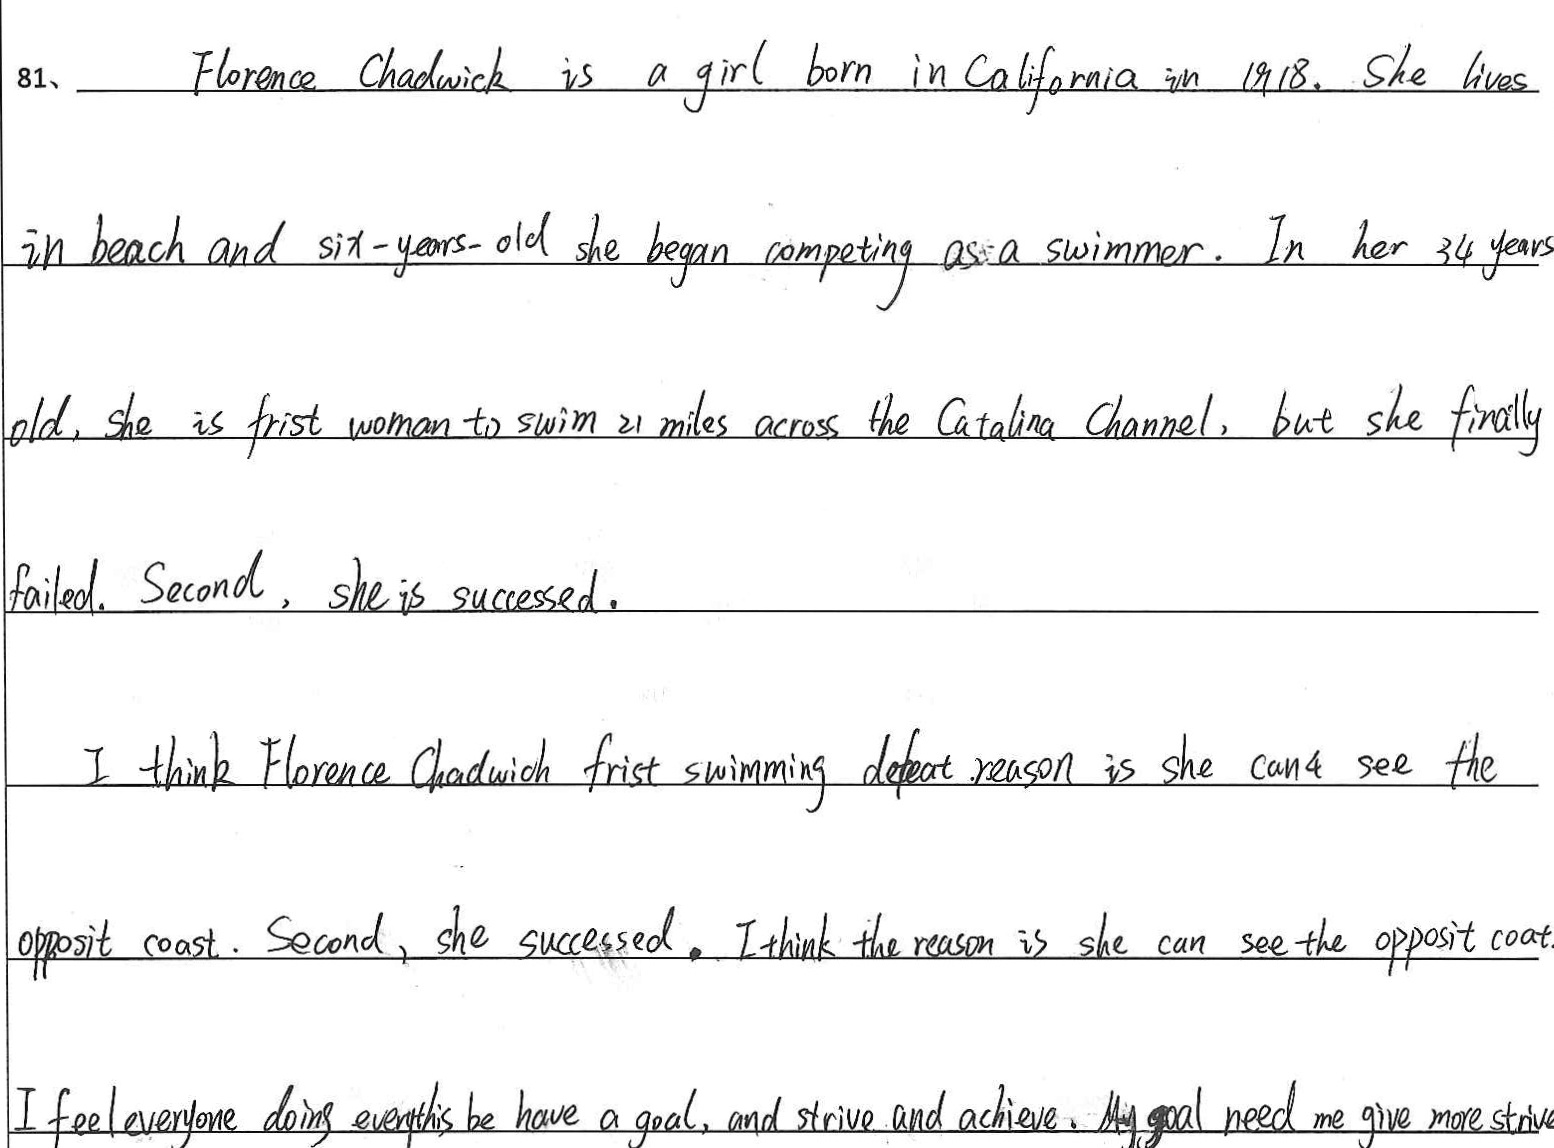 81、 Florence Chadwick is a girl born in California in 1918. She lives
in beach and six-years-old she began competing as a swimmer. In her 34 years
old, she is frist woman to swim 21 miles across the Catalina Channel, but she finally
failed. Second, she is successed.
I think Florence Chadwich frist swimming defeat reason is she can4 see the
opposit coast. Second, she successed. I think the reason is she can see the opposit coat.
I feel everyone doing everythis be have a goal, and strive and achieve. My goal need me give more strive